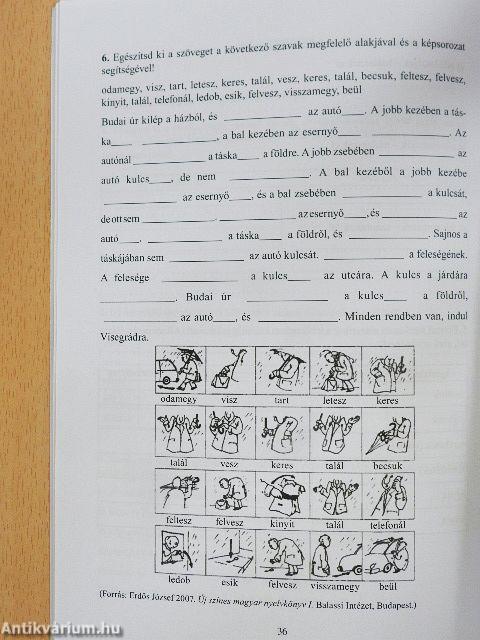 6. Egészítsd ki a szöveget a következő szavak megfelelő alakjával és a képsorozat
segítségével!
odamegy, visz, tart, letesz, keres, talál, vesz, keres, talál, becsuk, feltesz, felvesz,
kinyit, talál, telefonál, ledob, esik, felvesz, visszamegy, beül
Budai úr kilép a házból, és ____ az autó____. A jobb kezében a tás-
ka____ ____, a bal kezében az esernyő____ ____. Az
autónál ____ a táska____ a földre. A jobb zsebében ____ az
autó kulcs____, de nem ____. A bal kezéből a jobb kezébe
____ az esernyő____, és a bal zsebében ____ a kulcsát,
de ott sem ____, ____ az esernyő____, és ____ az
autó____, ____ a táska____ a földről, és ____. Sajnos a
táskájában sem ____ az autó kulcsát. ____ a feleségének.
A felesége ____ a kulcs____ az utcára. A kulcs a járdára
____. Budai úr ____ a kulcs____ a földről,
____ az autó____, és ____. Minden rendben van, indul
Visegrádra.
odamegy visz tart letesz keres
talál vesz keres talál becsuk
feltesz felvesz kinyit talál telefonál
ledob esik felvesz visszamegy beül
(Forrás: Erdős József 2007. Új színes magyar nyelvkönyv I. Balassi Intézet, Budapest.)
36
Antikvárium.hu